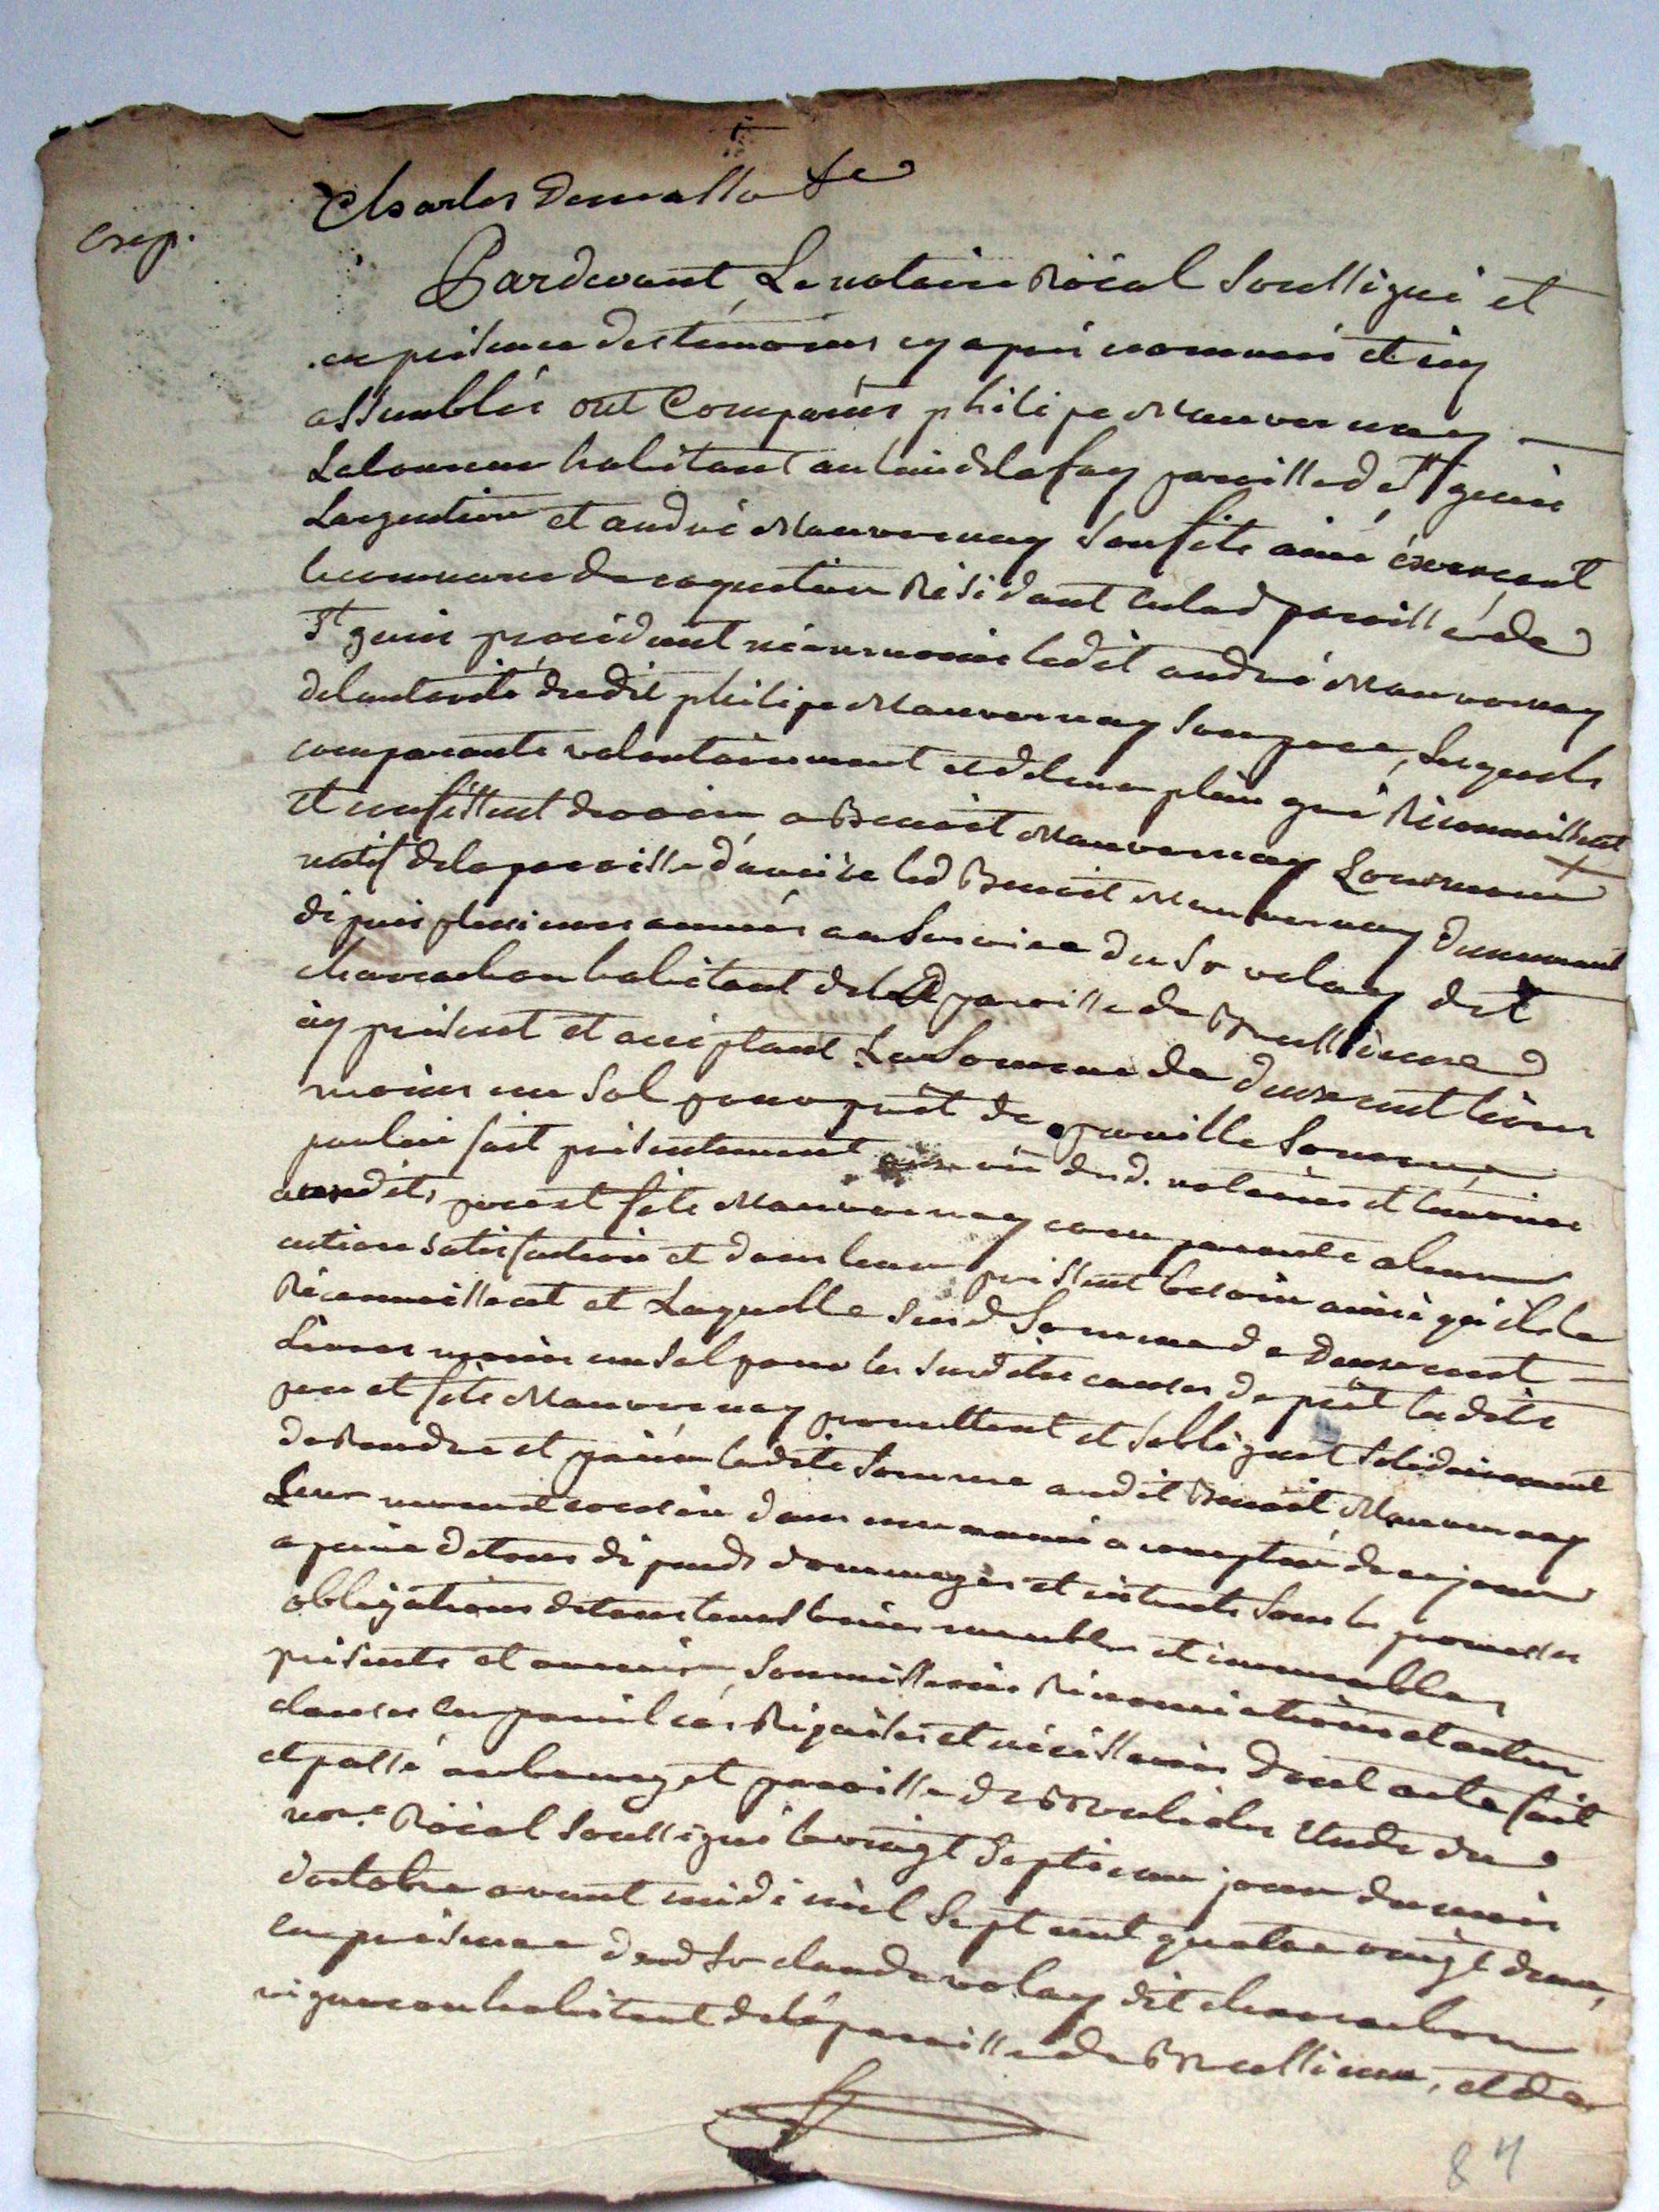 Charles Demallo
Exp.
Pardevant Le notaire Roïal Soussigné et
en présence des témoins cy aprés nommés et icy
assemblés ont Comparus philipe Mauvernay
Laboureur habitant au lieu de la fay paroisse de St genis
Largentiere et andré Mauvernay Son fils ainé éxercant
le commerce de coquetier Résidant en lad paroisse de
St genis procédant néanmoins ledit andré Mauvernay
de lautorité dudit philipe Mauvernay Son pere, Lesquels
comparants volontairement et de leur plein gré Reconnoissent
et confessent devoir a Benoit Mauvernay Leur
natif de la paroisse d'aveize led Benoit Mauvernay demeurant
depuis plusieurs années au Service du Sr volay dit
charachon habitant de la paroisse de Brullieure
icy présent et acceptant La Somme de deux cent livres
moins un Sol pour prêt de pareille Somme
par lui fait présentement au vu dud. notaire et témoins
auxdits pere et fils Mauvernay comparants a leur
entiere satisfaction et dans leur pressant besoin ainsi qu'ils le
Reconnoissent et Laquelle Susd Somme de Deux cent
Livres moins un Sol pour les Susdites causes de prêt lesdits
pere et fils Mauvernay promettent et s'obligent Solidairement
de Rendre et païer ladite Somme audit Benoit Mauvernay
Leur neveu et cousin dans une année a compter de ce jour
a peine de tous dépends dommages et intérêts Sous les promesses
obligations de tous leurs biens meubles et immeubles
présents et avenir, Soumissions Rénonciations et autres
clauses en pareil cas Réquises et nécéssaires Dont acte fait
et passé au bourg et paroisse de Brulioles Etude du
nore. Roïal Soussigné le vingt Septieme jour du mois
d'octobre avant midi mil Sept cent quatre vingt deux,
en présence dud Sr claude volay dit charachon
vigneron habitant de la paroisse de Brullieure, et de
84